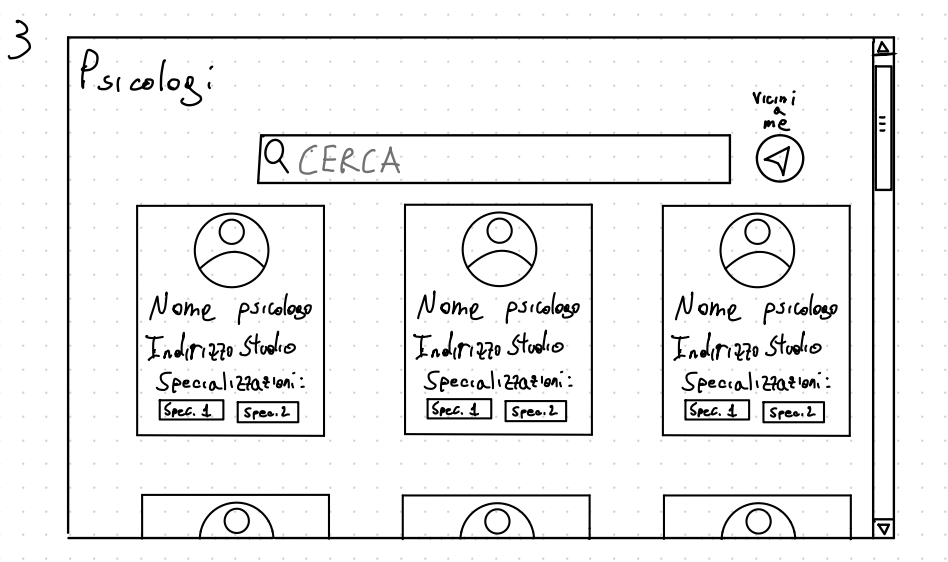 3
Psicologi
Vicini
a
me
CERCA
Nome psicologo
Indirizzo Studio
Specializzazioni:
Spec. 1 Spec. 2
Nome psicologo
Indirizzo Studio
Specializzazioni:
Spec. 1 Spec. 2
Nome psicologo
Indirizzo Studio
Specializzazioni:
Spec. 1 Spec. 2